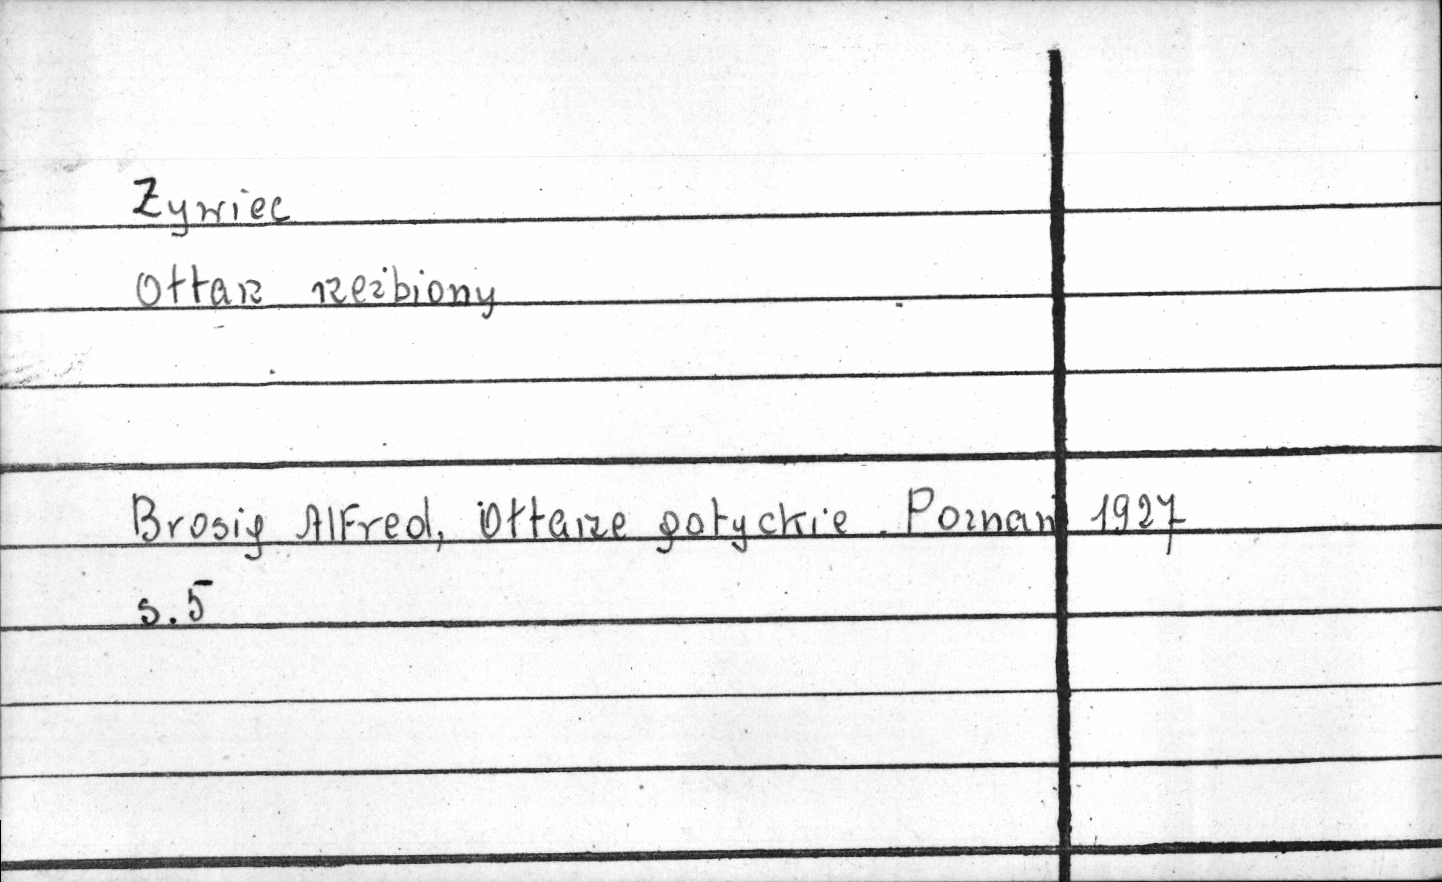 Żywiec
Ołtarz rzeźbiony
Brosig Alfred, Ołtarze gotyckie. Poznań 1927
s. 5